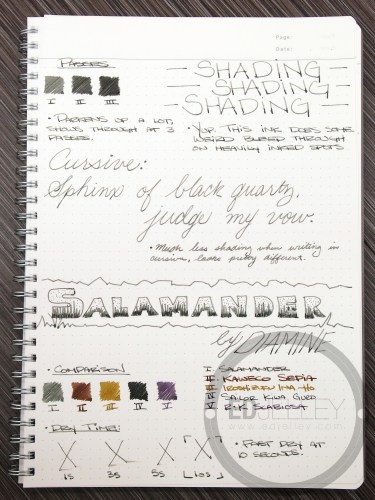 Page:
Date:
PASSES
I II III
• DARKENS UP A LOT,
SHOWS THROUGH AT 3
PASSES.
— SHADING —
— SHADING —
— SHADING —
• YUP. THIS INK DOES SOME
WEIRD BLEED THROUGH
ON HEAVILY INKED SPOTS
Cursive:
Sphinx of black quartz,
judge my vow.
• Much less shading when writing in
cursive, looks pretty different.
SALAMANDER
by DIAMINE
• COMPARISON
I II III IV V
I SALAMANDER
II KAWECO SEPIA
III IROSHIZUKU INA-HO
IV SAILOR KIWA GURO
V R&K SCABIOSA
DRY TIME:
X X X X
1s 3s 5s 10s
• FAST DRY AT
10 SECONDS.
ED JELLEY
www.edjelley.com